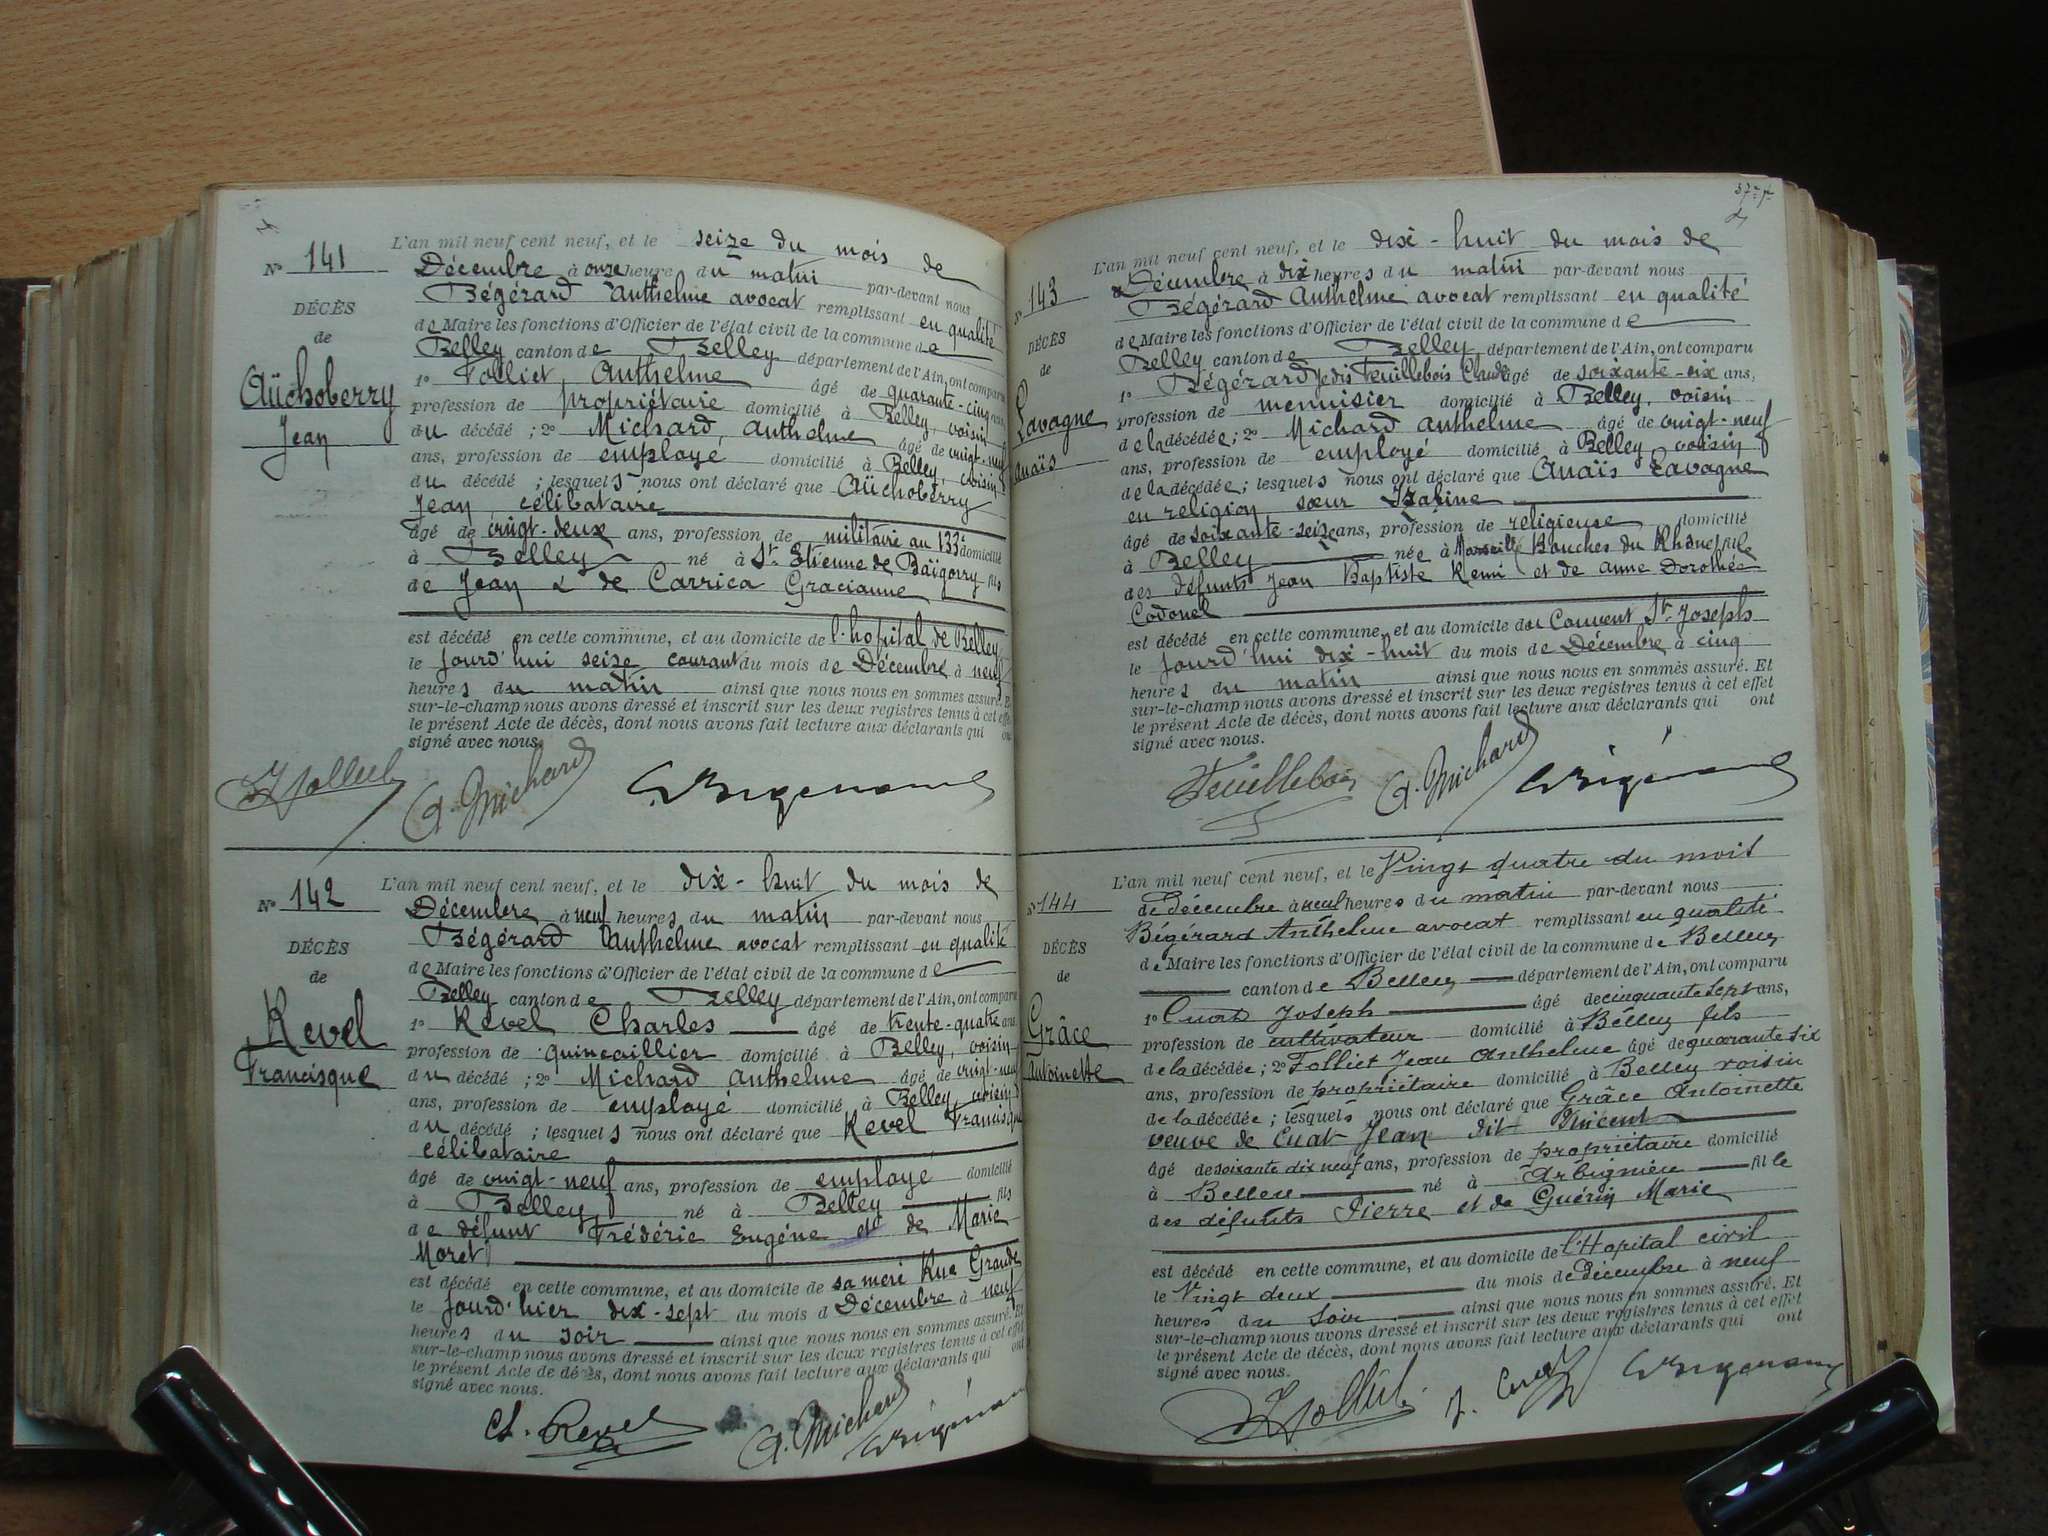 N° 141
DÉCÈS
de
Aüchoberry
Jean
L'an mil neuf cent neuf, et le seize du mois de
Décembre à onze heures du matin par-devant nous
Bégérard Anthelme avocat remplissant en qualité
de Maire les fonctions d'Officier de l'état civil de la commune de
Belley canton de Belley département de l'Ain, ont comparu
1° Folliet, Anthelme âgé de quarante-cinq ans,
profession de propriétaire domicilié à Belley, voisin
du décédé ; 2° Michard, Anthelme âgé de vingt-neuf
ans, profession de employé domicilié à Belley, voisin
du décédé ; lesquels nous ont déclaré que Aüchoberry
Jean, célibataire
âgé de vingt-deux ans, profession de militaire au 133e domicilié
à Belley né à St. Etienne de Baïgorry fils
de Jean & de Carrica Gracianne
est décédé en cette commune, et au domicile de l'hopital de Belley
le Jourd'hui seize courant du mois de Décembre à neuf
heures du matin ainsi que nous nous en sommes assuré. Et
sur-le-champ nous avons dressé et inscrit sur les deux registres tenus à cet effet
le présent Acte de décès, dont nous avons fait lecture aux déclarants qui ont
signé avec nous.
A. Michard
N° 142
DÉCÈS
de
Revel
Francisque
L'an mil neuf cent neuf, et le dix-huit du mois de
Décembre à neuf heures du matin par-devant nous
Bégérard Anthelme avocat remplissant en qualité
de Maire les fonctions d'Officier de l'état civil de la commune de
Belley canton de Belley département de l'Ain, ont comparu
1° Revel Charles âgé de trente-quatre ans
profession de quincaillier domicilié à Belley, voisin
du décédé ; 2° Michard Anthelme âgé de vingt-neuf
ans, profession de employé domicilié à Belley, voisin
du décédé ; lesquels nous ont déclaré que Revel Francisque
célibataire
âgé de vingt-neuf ans, profession de employé domicilié
à Belley né à Belley fils
de défunt Frédéric Eugéne et de Marie
Moret
est décédé en cette commune, et au domicile de sa meré Rue Grande
le Jourd'hier dix-sept du mois d Décembre à neuf
heures du soir ainsi que nous nous en sommes assuré. Et
sur-le-champ nous avons dressé et inscrit sur les deux registres tenus à cet effet
le présent Acte de décès, dont nous avons fait lecture aux déclarants qui ont
signé avec nous.
Ch. Revel A. Michard
N° 143
DÉCÈS
de
Lavagne
Anaïs
L'an mil neuf cent neuf, et le dix-huit du mois de
Décembre à dix heures du matin par-devant nous
Bégérard Anthelme avocat remplissant en qualité
de Maire les fonctions d'Officier de l'état civil de la commune de
Belley canton de Belley département de l'Ain, ont comparu
1° Bégérard je dis Feuillebois Claude âgé de soixante-six ans,
profession de menuisier domicilié à Belley, voisin
de la décédée ; 2° Michard Anthelme âgé de vingt-neuf
ans, profession de employé domicilié à Belley voisin
de la décédée ; lesquels nous ont déclaré que Anaïs Lavagne
en religion sœur Isabine
âgé de soixante-seize ans, profession de religieuse domicilié
à Belley née à Marseille Bouches du Rhône fille
des défunts Jean Baptiste Remi et de Anne Dorothée
Codonel
est décédé en cette commune, et au domicile du Couvent St. Joseph
le Jourd'hui dix-huit du mois de Décembre à cinq
heures du matin ainsi que nous nous en sommes assuré. Et
sur-le-champ nous avons dressé et inscrit sur les deux registres tenus à cet effet
le présent Acte de décès, dont nous avons fait lecture aux déclarants qui ont
signé avec nous.
Feuillebois A. Michard
N° 144
DÉCÈS
de
Grâce
Antoinette
L'an mil neuf cent neuf, et le Vingt quatre du mois
de décembre à neuf heures du matin par-devant nous
Bégérard Anthelme avocat remplissant en qualité
de Maire les fonctions d'Officier de l'état civil de la commune de Belley
canton de Belley département de l'Ain, ont comparu
1° Cuat Joseph âgé de cinquante sept ans,
profession de cultivateur domicilié à Belley fils
de la décédée ; 2° Folliet Jean Anthelme âgé de quarante six
ans, profession de propriétaire domicilié à Belley voisin
de la décédée ; lesquels nous ont déclaré que Grâce Antoinette
veuve de Cuat Jean dit Vincent
âgé de soixante dix neuf ans, profession de propriétaire domicilié
à Belley né à Arbignieu fille
des défunts Pierre et de Guérin Marie
est décédé en cette commune, et au domicile de l'Hopital civil
le Vingt deux du mois de décembre à neuf
heures du soir ainsi que nous nous en sommes assuré. Et
sur-le-champ nous avons dressé et inscrit sur les deux registres tenus à cet effet
le présent Acte de décès, dont nous avons fait lecture aux déclarants qui ont
signé avec nous.